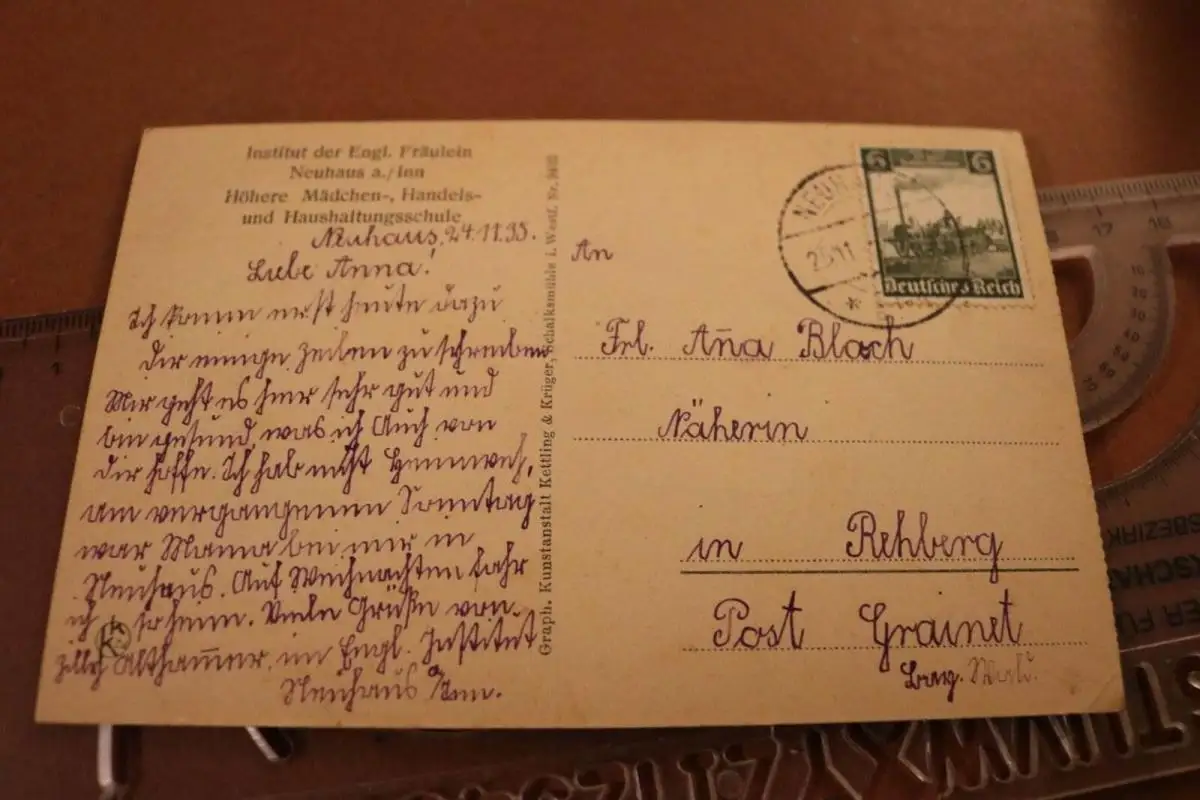 Institut der Engl. Fräulein
Neuhaus a./Inn
Höhere Mädchen-, Handels-
und Haushaltungsschule
Neuhaus, 24.11.35.
Liebe Anna!
Ich komm erst heute dazu
dir einige Zeilen zu schreiben
Mir geht es hier sehr gut und
bin gesund, was ich Auch von
dir hoffe. Ich hab nicht Heimweh,
am vergangenen Sonntag
war Mama bei mir in
Neuhaus. Auf Weihnachten fahr
ich so heim. Viele Grüße von
Zilly Altham̄er, im Engl. Institut
Neuhaus a/Inn.
Graph. Kunstanstalt Kettling & Krüger, Schalksmühle i. Westf. Nr.
An
Frl. An̄a Bloch
Näherin
in Rehberg
Post Grainet
Bay. Wald.
6 6
Deutsches Reich
NEUH
16
17